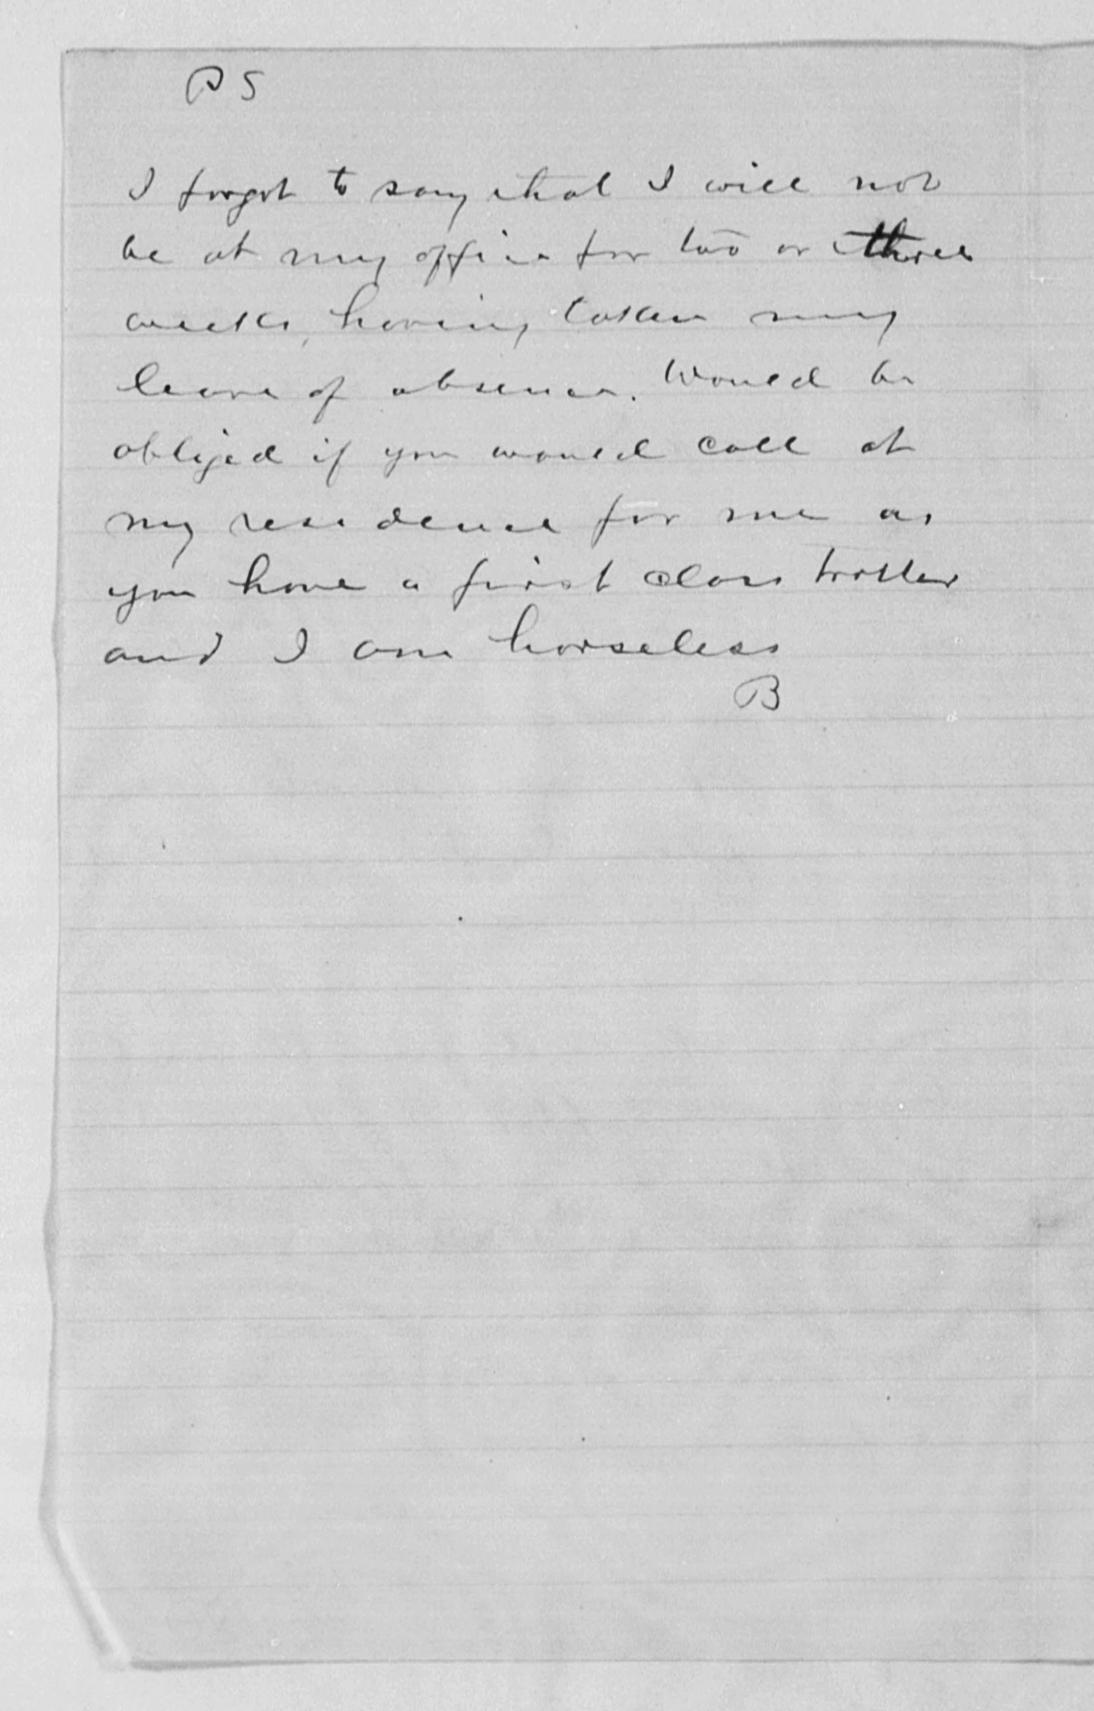 PS
I forgot to say that I will not
be at my office for two or three
weeks, having taken my
leave of absence. Would be
obliged if you would call at
my residence for me as
you have a first class trotter
and I am horseless
B